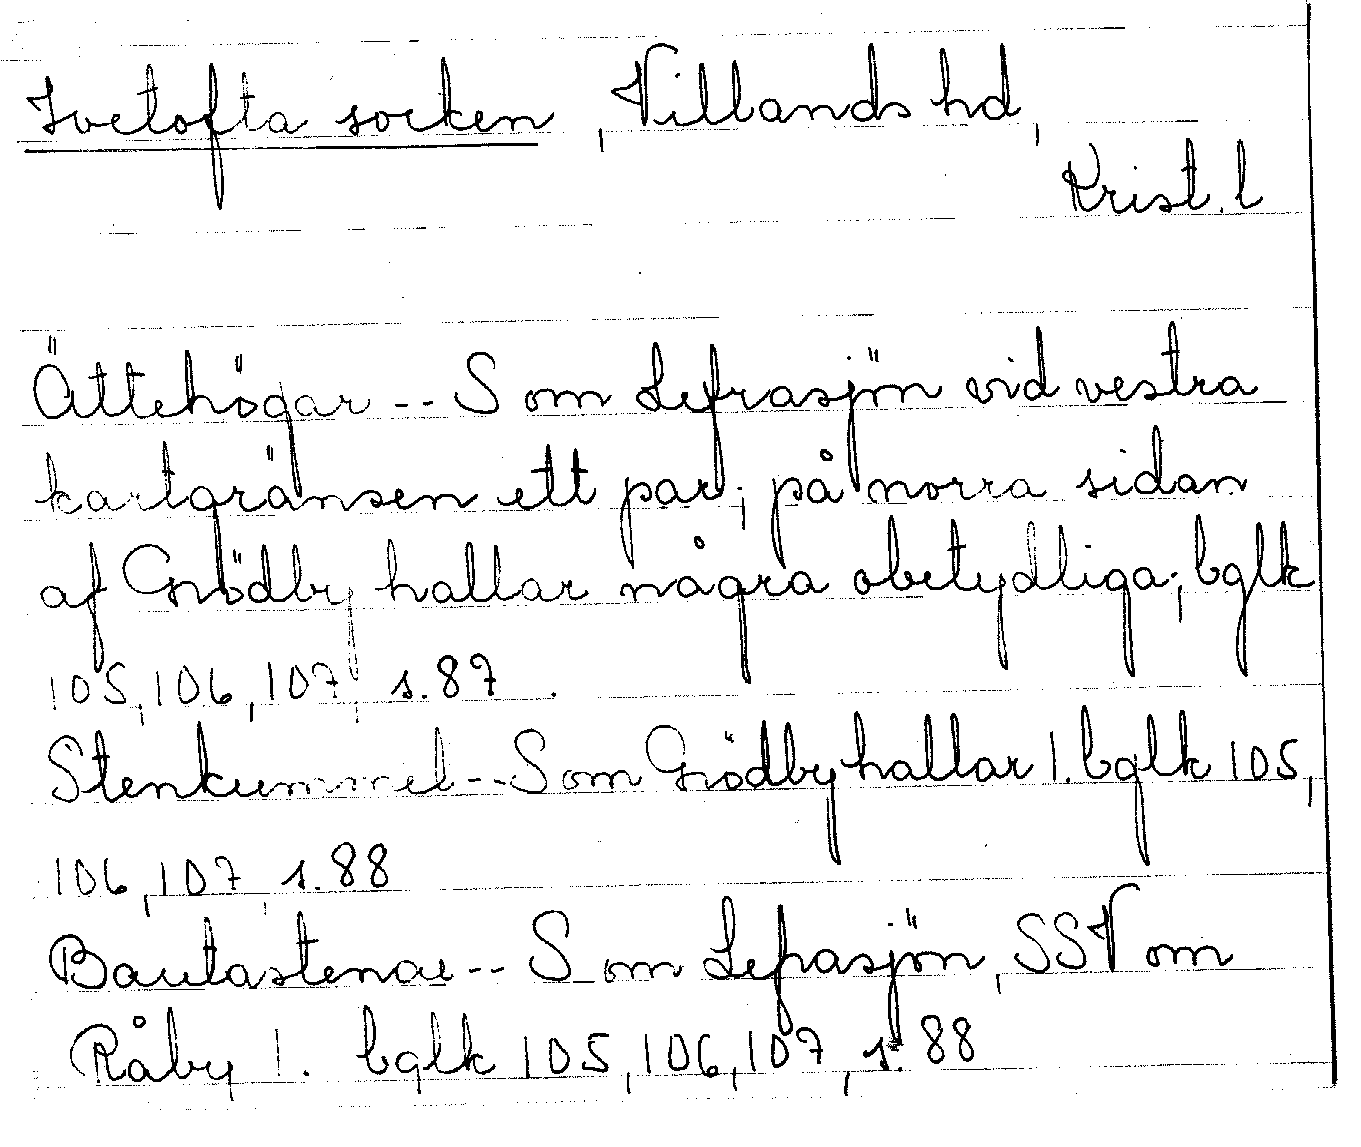 Ivetofta socken, Villands hd,
Krist. l
Ättehögar -- S om Lefrasjön vid vestra
kartgränsen ett par; på norra sidan
af Grödby hallar några obetydliga; bglk
105, 106, 107, s. 87.
Stenkummel -- S om Grödby hallar 1. bglk 105,
106, 107, s. 88
Bautastenar -- S om Lefrasjön, SSV om
Råby 1. bglk 105, 106, 107, s. 88